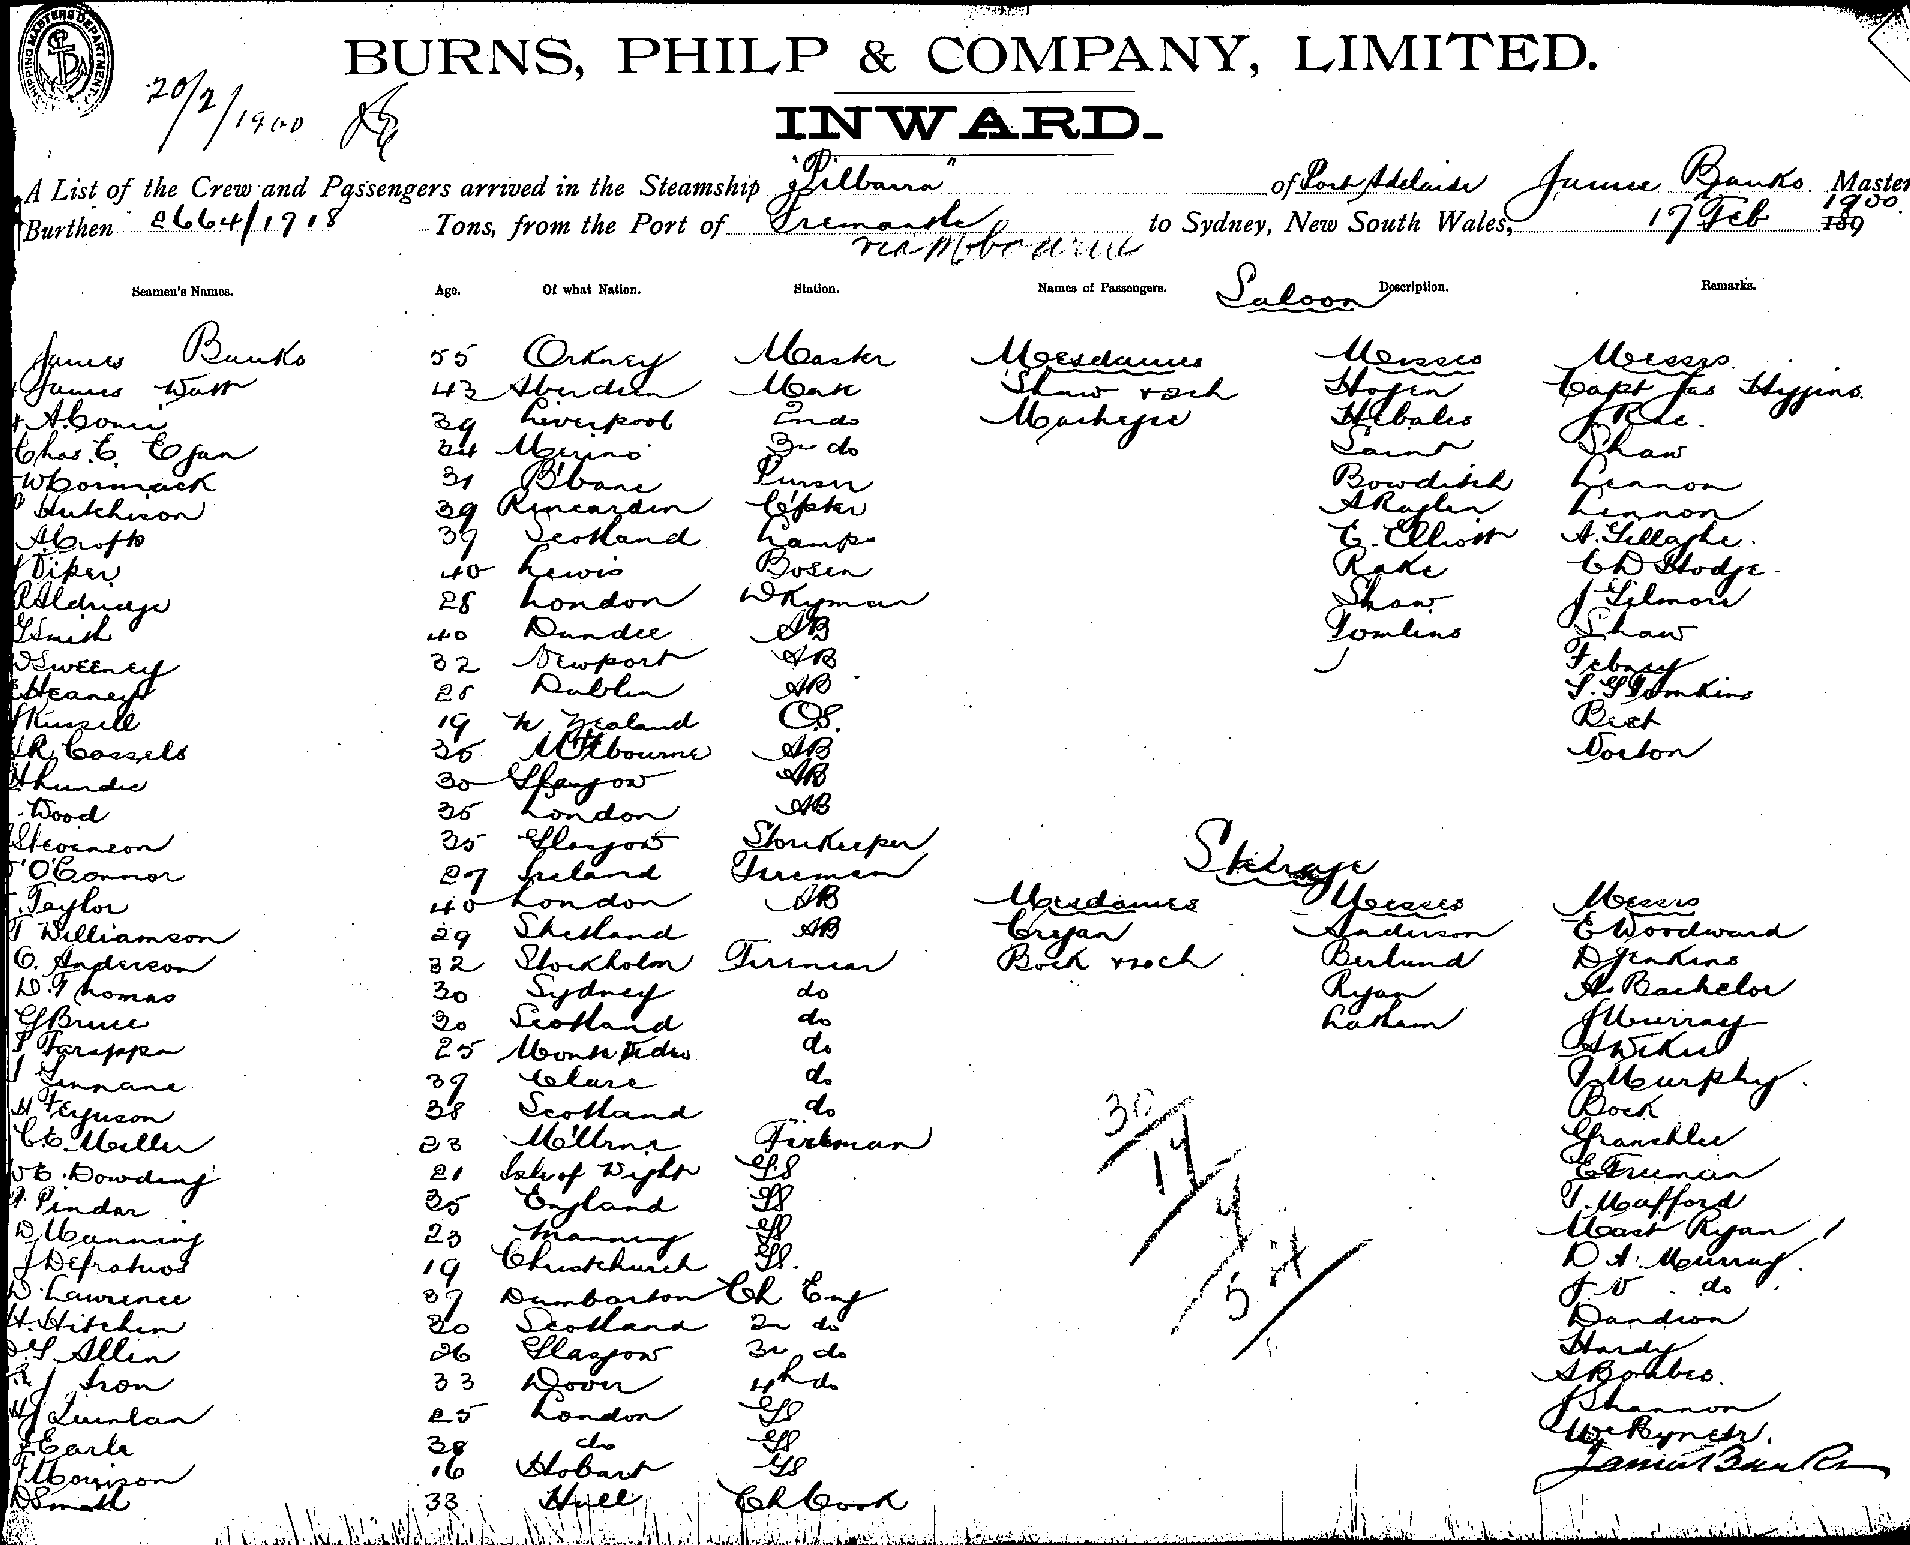 SHIPPING MASTERS DEPARTMENT
BURNS, PHILP & COMPANY, LIMITED.
20/2/1900
INWARD.
A List of the Crew and Passengers arrived in the Steamship "Pilbarra" of Port Adelaide James Banks Master
Burthen 2664/1918 Tons, from the Port of Fremantle to Sydney, New South Wales, 17 Feb 1900 189
via Melbourne
Seamen's Names. Age. Of what Nation. Station. Names of Passengers. Saloon Description. Remarks.
James Banks 55 Orkney Master Mesdames Misses Messrs
James Watt 43 Aberdeen Mate Shaw & 2ch Hogen Capt Jas Higgins
39 Liverpool 2nd do Mackezie J Rae.
Chas. E. Egan 34 3rd do Saint Shaw
W Cormack 31 B'bane Purser Bowditch Lennon
Hutchison 39 Kincardin C'pter Lennon
A Crofts 39 Scotland Lamps E. Elliott A. Gillaghe.
Piper 40 Lewis Bosen Rake C D Hodge
R Aldridge 28 London Shaw J Gilmore
G Smith 40 Dundee AB Tomlins Shaw
D Sweeney 32 Newport AB Febney
Heaney 28 Dublin AB S. G Tomkins
Russell 19 N Zealand OS. Beck
R Cassels 35 Melbourne AB Norton
30 Glasgow AB
Wood 35 London AB
Stevenson 35 Glasgow Storekeeper
O'Connor 27 Ireland Fireman Steerage
Taylor 40 London AB Mesdames Misses Messrs
Williamson 29 Shetland AB Cregan Anderson E Woodward
C. Anderson 32 Stockholm Fireman Bock & 2ch Berlund D Jenkins
D. Thomas 30 Sydney do Ryan A. Bachelor
G Bruce 30 Scotland do Latham J Murray
25 Monte Video do
Ginnane 39 Clare do T Murphy.
H Ferguson 38 Scotland do Bock
C E. Miller 23 M'lbrne Fireman
W E. Dowding 21 Isle of Wight GS E Truman
Pindar 35 England GS T. Mafford
D Manning 23 Manning GS Mast Ryan 1
19 Christchurch GS. D A. Murray.
D. Lawrence 37 Dumbarton Ch Eng J. V. do.
H. Hitchin 30 Scotland 2n do Dandson
G Allen 26 Glasgow 3r do Hardy
J Iron 33 Dover 4th do
H J Quinlan 25 London GS J Shannon
Earle 38 do GS
Morrison 16 Hobart GS James Banks
D Small 33 Hull Ch Cook
30
14
4
54